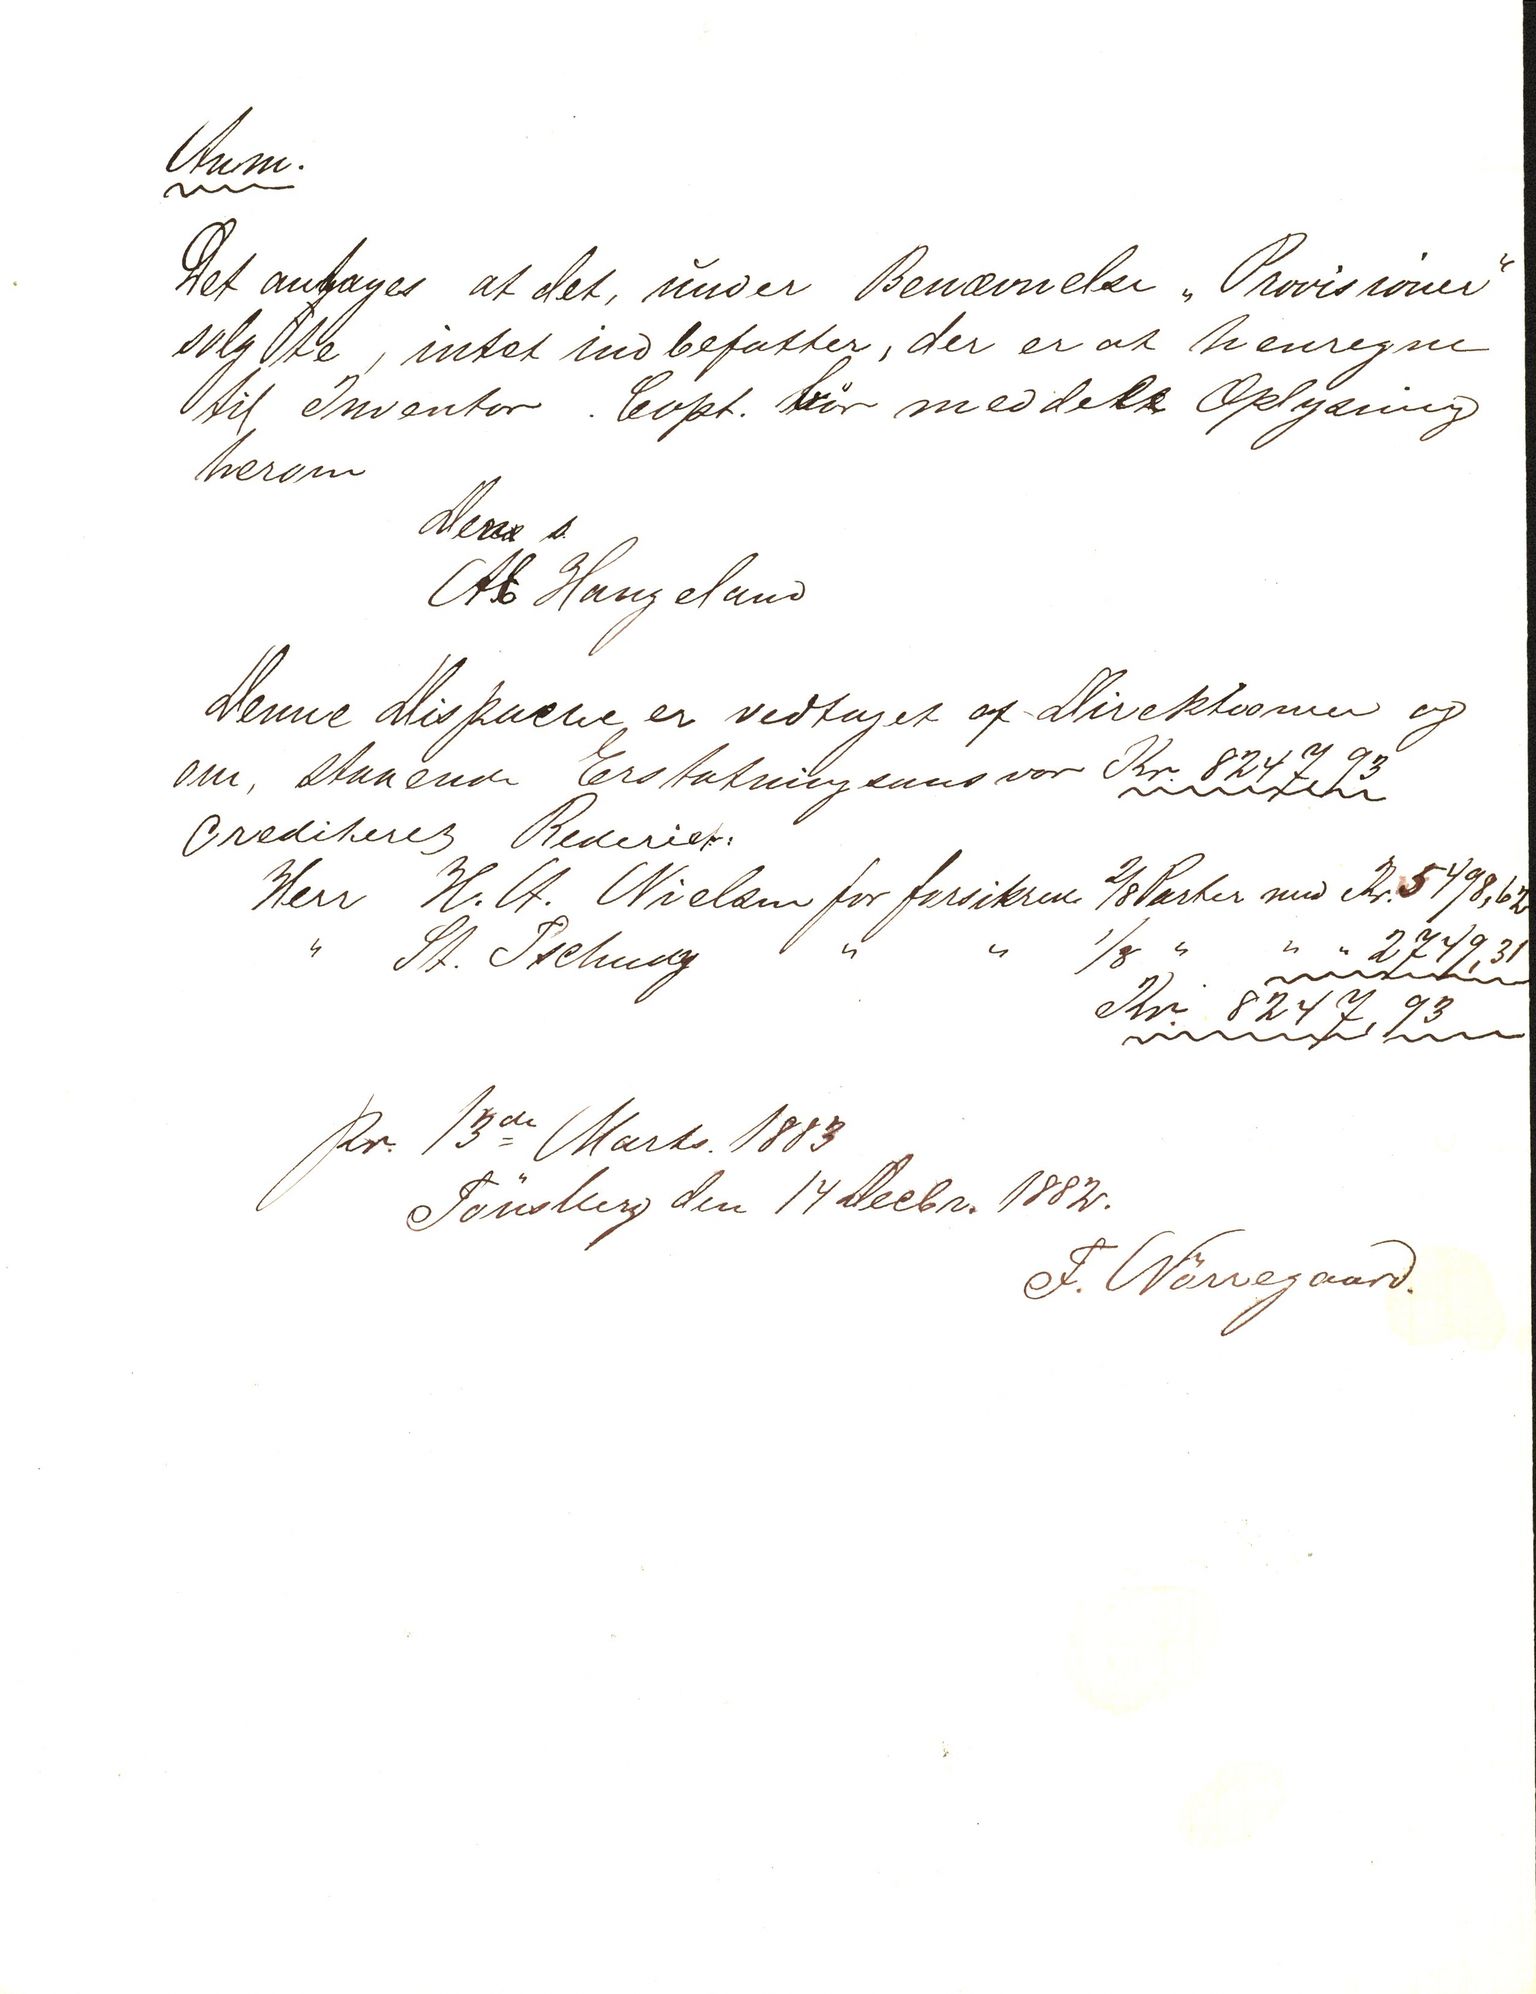 Anm.
Det antages at det, under Benævnelse „Provisioner“
solgte, intet indbefatter, der er at henregne
til Inventar. Capt. bör meddele Oplysning
herom
A Haugeland
Denne Dispache er vedtaget af Direktionen og
om, staaende Erstatningsansvar Kr. 8247,93
crediteres Rederiet:
Herr H. A. Nielsen for forsikrede 2/8 Parter med Kr. 5498,62
" St. Tschudy " " 1/8 " " " 2749,31
Kr. 8247,93
pr. 13de Marts. 1883
Tönsberg den 14 Decbr. 1882.
F. Nörregaard.